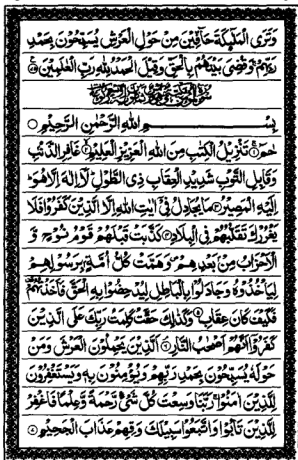 وَتَرَى الْمَلٰٓئِكَةَ حَآفِّيْنَ مِنْ حَوْلِ الْعَرْشِ يُسَبِّحُوْنَ بِحَمْدِ
رَبِّهِمْ وَقُضِيَ بَيْنَهُمْ بِالْحَقِّ وَقِيْلَ الْحَمْدُ لِلّٰهِ رَبِّ الْعٰلَمِيْنَ ۝٧٥
بِسْمِ اللّٰهِ الرَّحْمٰنِ الرَّحِيْمِ ۝
حٰمٓ ۝١ تَنْزِيْلُ الْكِتٰبِ مِنَ اللّٰهِ الْعَزِيْزِ الْعَلِيْمِ ۝٢ غَافِرِ الذَّنْبِ
وَقَابِلِ التَّوْبِ شَدِيْدِ الْعِقَابِ ذِى الطَّوْلِ لَآ اِلٰهَ اِلَّا هُوَ
اِلَيْهِ الْمَصِيْرُ ۝٣ مَا يُجَادِلُ فِيْٓ اٰيٰتِ اللّٰهِ اِلَّا الَّذِيْنَ كَفَرُوْا فَلَا
يَغْرُرْكَ تَقَلُّبُهُمْ فِى الْبِلَادِ ۝٤ كَذَّبَتْ قَبْلَهُمْ قَوْمُ نُوْحٍ وَّ
الْاَحْزَابُ مِنْۢ بَعْدِهِمْ وَهَمَّتْ كُلُّ اُمَّةٍۭ بِرَسُوْلِهِمْ
لِيَاْخُذُوْهُ وَجَادَلُوْا بِالْبَاطِلِ لِيُدْحِضُوْا بِهِ الْحَقَّ فَاَخَذْتُهُمْ
فَكَيْفَ كَانَ عِقَابِ ۝٥ وَكَذٰلِكَ حَقَّتْ كَلِمَتُ رَبِّكَ عَلَى الَّذِيْنَ
كَفَرُوْٓا اَنَّهُمْ اَصْحٰبُ النَّارِ ۝٦ اَلَّذِيْنَ يَحْمِلُوْنَ الْعَرْشَ وَمَنْ
حَوْلَهٗ يُسَبِّحُوْنَ بِحَمْدِ رَبِّهِمْ وَيُؤْمِنُوْنَ بِهٖ وَيَسْتَغْفِرُوْنَ
لِلَّذِيْنَ اٰمَنُوْا رَبَّنَا وَسِعْتَ كُلَّ شَىْءٍ رَّحْمَةً وَّعِلْمًا فَاغْفِرْ
لِلَّذِيْنَ تَابُوْا وَاتَّبَعُوْا سَبِيْلَكَ وَقِهِمْ عَذَابَ الْجَحِيْمِ ۝٧